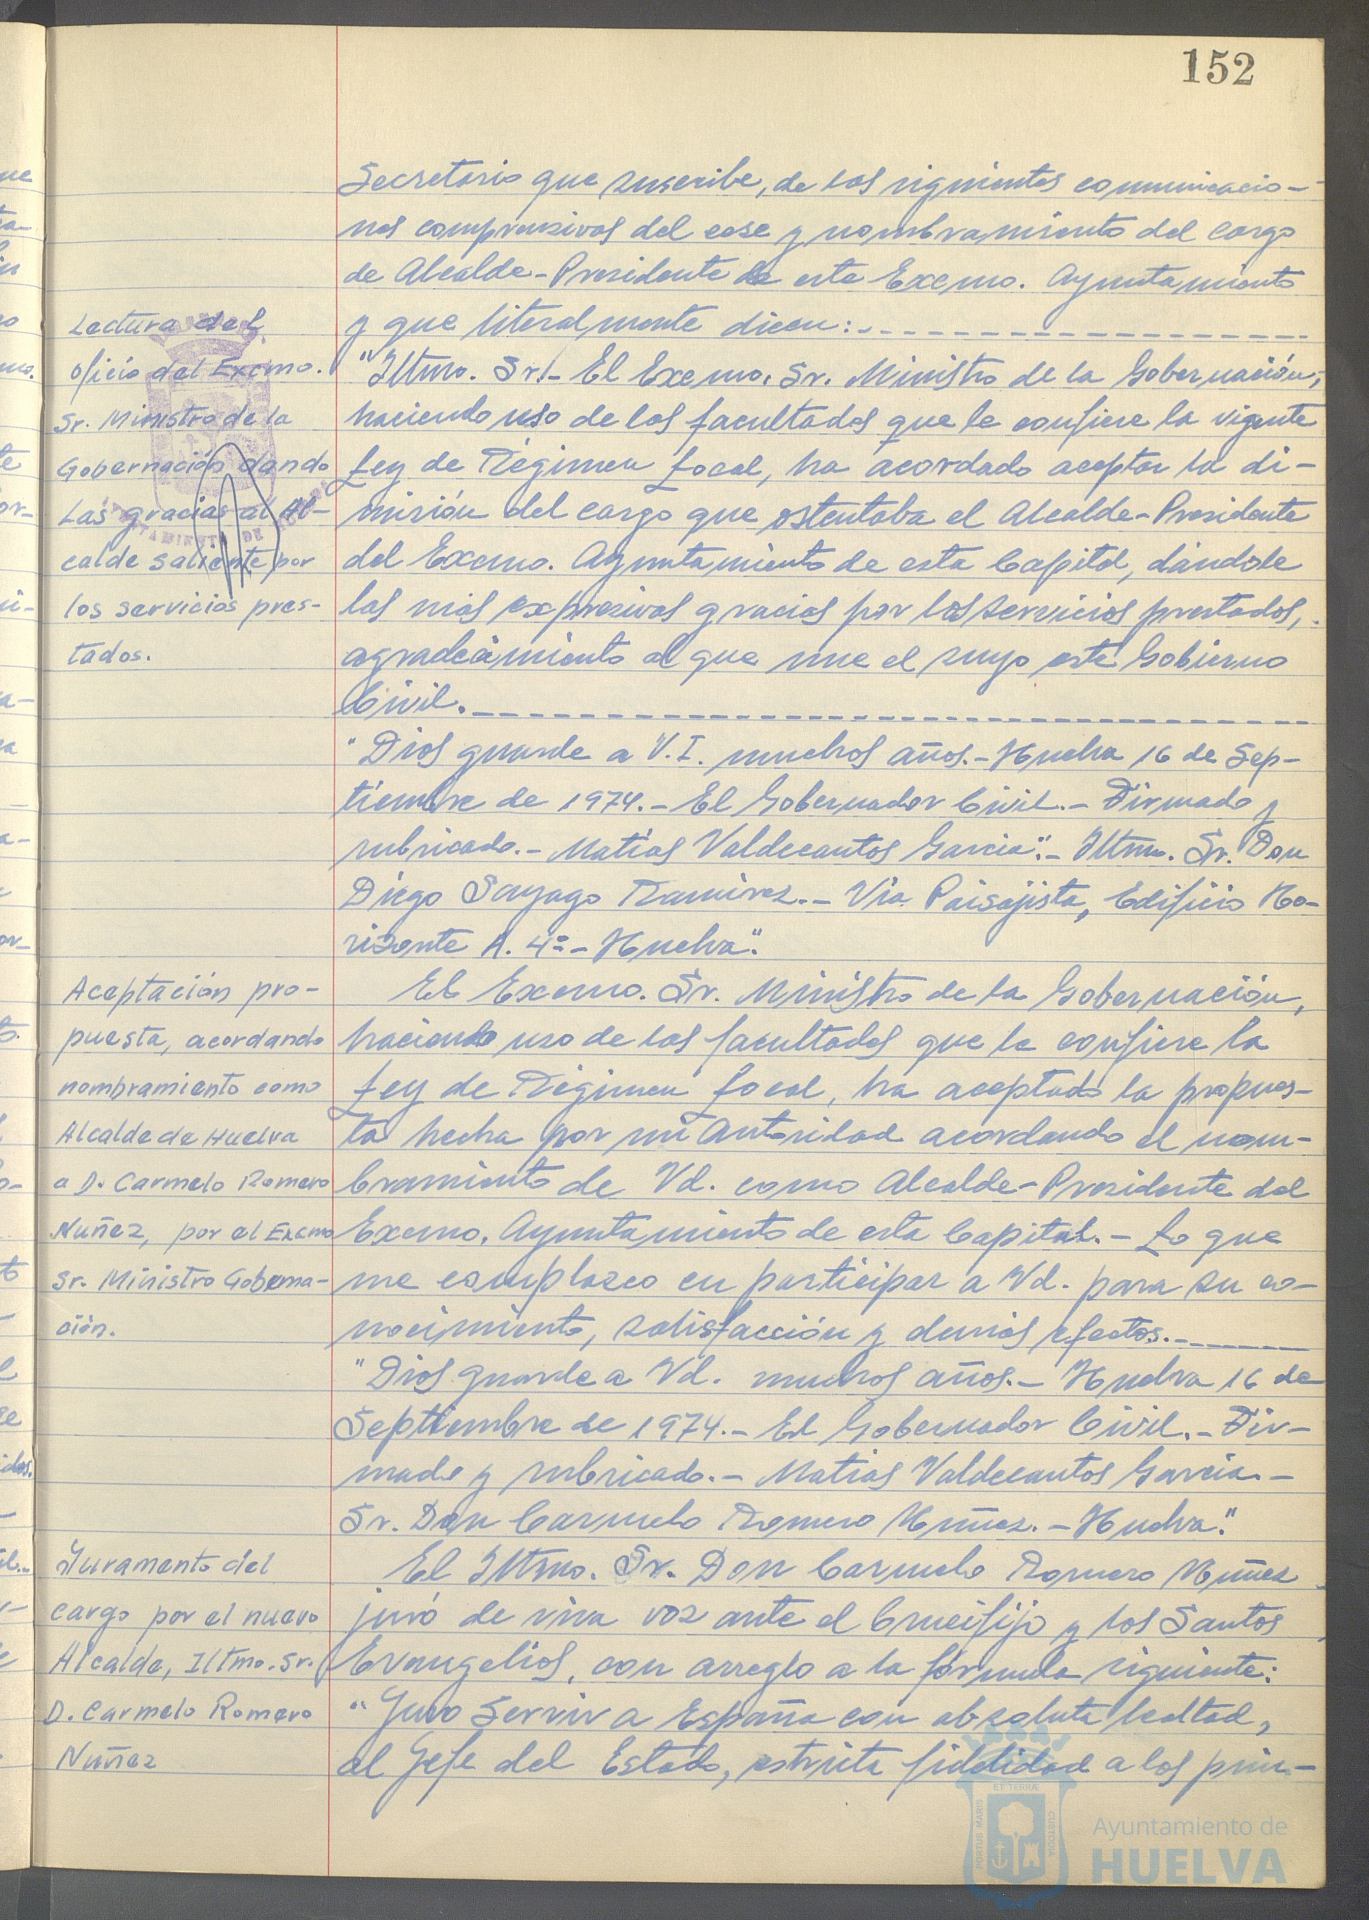 152
Secretario que suscribe, de las siguientes comunicacio-
nes comprensivas del cese y nombramiento del cargo
de Alcalde-Presidente de este Excmo. Ayuntamiento
y que literalmente dicen:
Lectura del
oficio del Excmo.
Sr. Ministro de la
Gobernación dando
las gracias al Al-
calde saliente por
los servicios pres-
tados.
"Iltmo. Sr.- El Excmo. Sr. Ministro de la Gobernación,
haciendo uso de las facultades que le confiere la vigente
Ley de Régimen Local, ha acordado aceptar la di-
misión del cargo que ostentaba el Alcalde-Presidente
del Excmo. Ayuntamiento de esta Capital, dándole
las más expresivas gracias por los servicios prestados,
agradecimiento al que une el suyo este Gobierno
Civil.
"Dios guarde a V.I. muchos años.- Huelva 16 de Sep-
tiembre de 1974.- El Gobernador Civil.- Firmado y
rubricado.- Matías Valdecantos García".- Iltmo. Sr. Don
Diego Sayago Ramírez.- Vía Paisajista, Edificio Ho-
rizonte A. 4º- Huelva".
Aceptación pro-
puesta, acordando
nombramiento como
Alcalde de Huelva
a D. Carmelo Romero
Nuñez, por el Excmo
Sr. Ministro Goberna-
ción.
El Excmo. Sr. Ministro de la Gobernación,
haciendo uso de las facultades que le confiere la
Ley de Régimen Local, ha aceptado la propues-
ta hecha por mi Autoridad acordando el nom-
bramiento de Vd. como Alcalde-Presidente del
Excmo. Ayuntamiento de esta Capital.- Lo que
me complazco en participar a Vd. para su co-
nocimiento, satisfacción y demás efectos.-
"Dios guarde a Vd. muchos años.- Huelva 16 de
Septiembre de 1974.- El Gobernador Civil.- Fir-
mado y rubricado.- Matias Valdecantos García.-
Sr. Don Carmelo Romero Nuñez.- Huelva."
Juramento del
cargo por el nuevo
Alcalde, Iltmo. Sr.
D. Carmelo Romero
Nuñez
El Iltmo. Sr. Don Carmelo Romero Nuñez
juró de viva voz ante el Crucifijo y los Santos
Evangelios, con arreglo a la fórmula siguiente:
"Juro Servir a España con absoluta lealtad,
al Jefe del Estado, estricta fidelidad a los prin-
PORTUS MARIS
ET TERRÆ
CUSTODIA
Ayuntamiento de
HUELVA